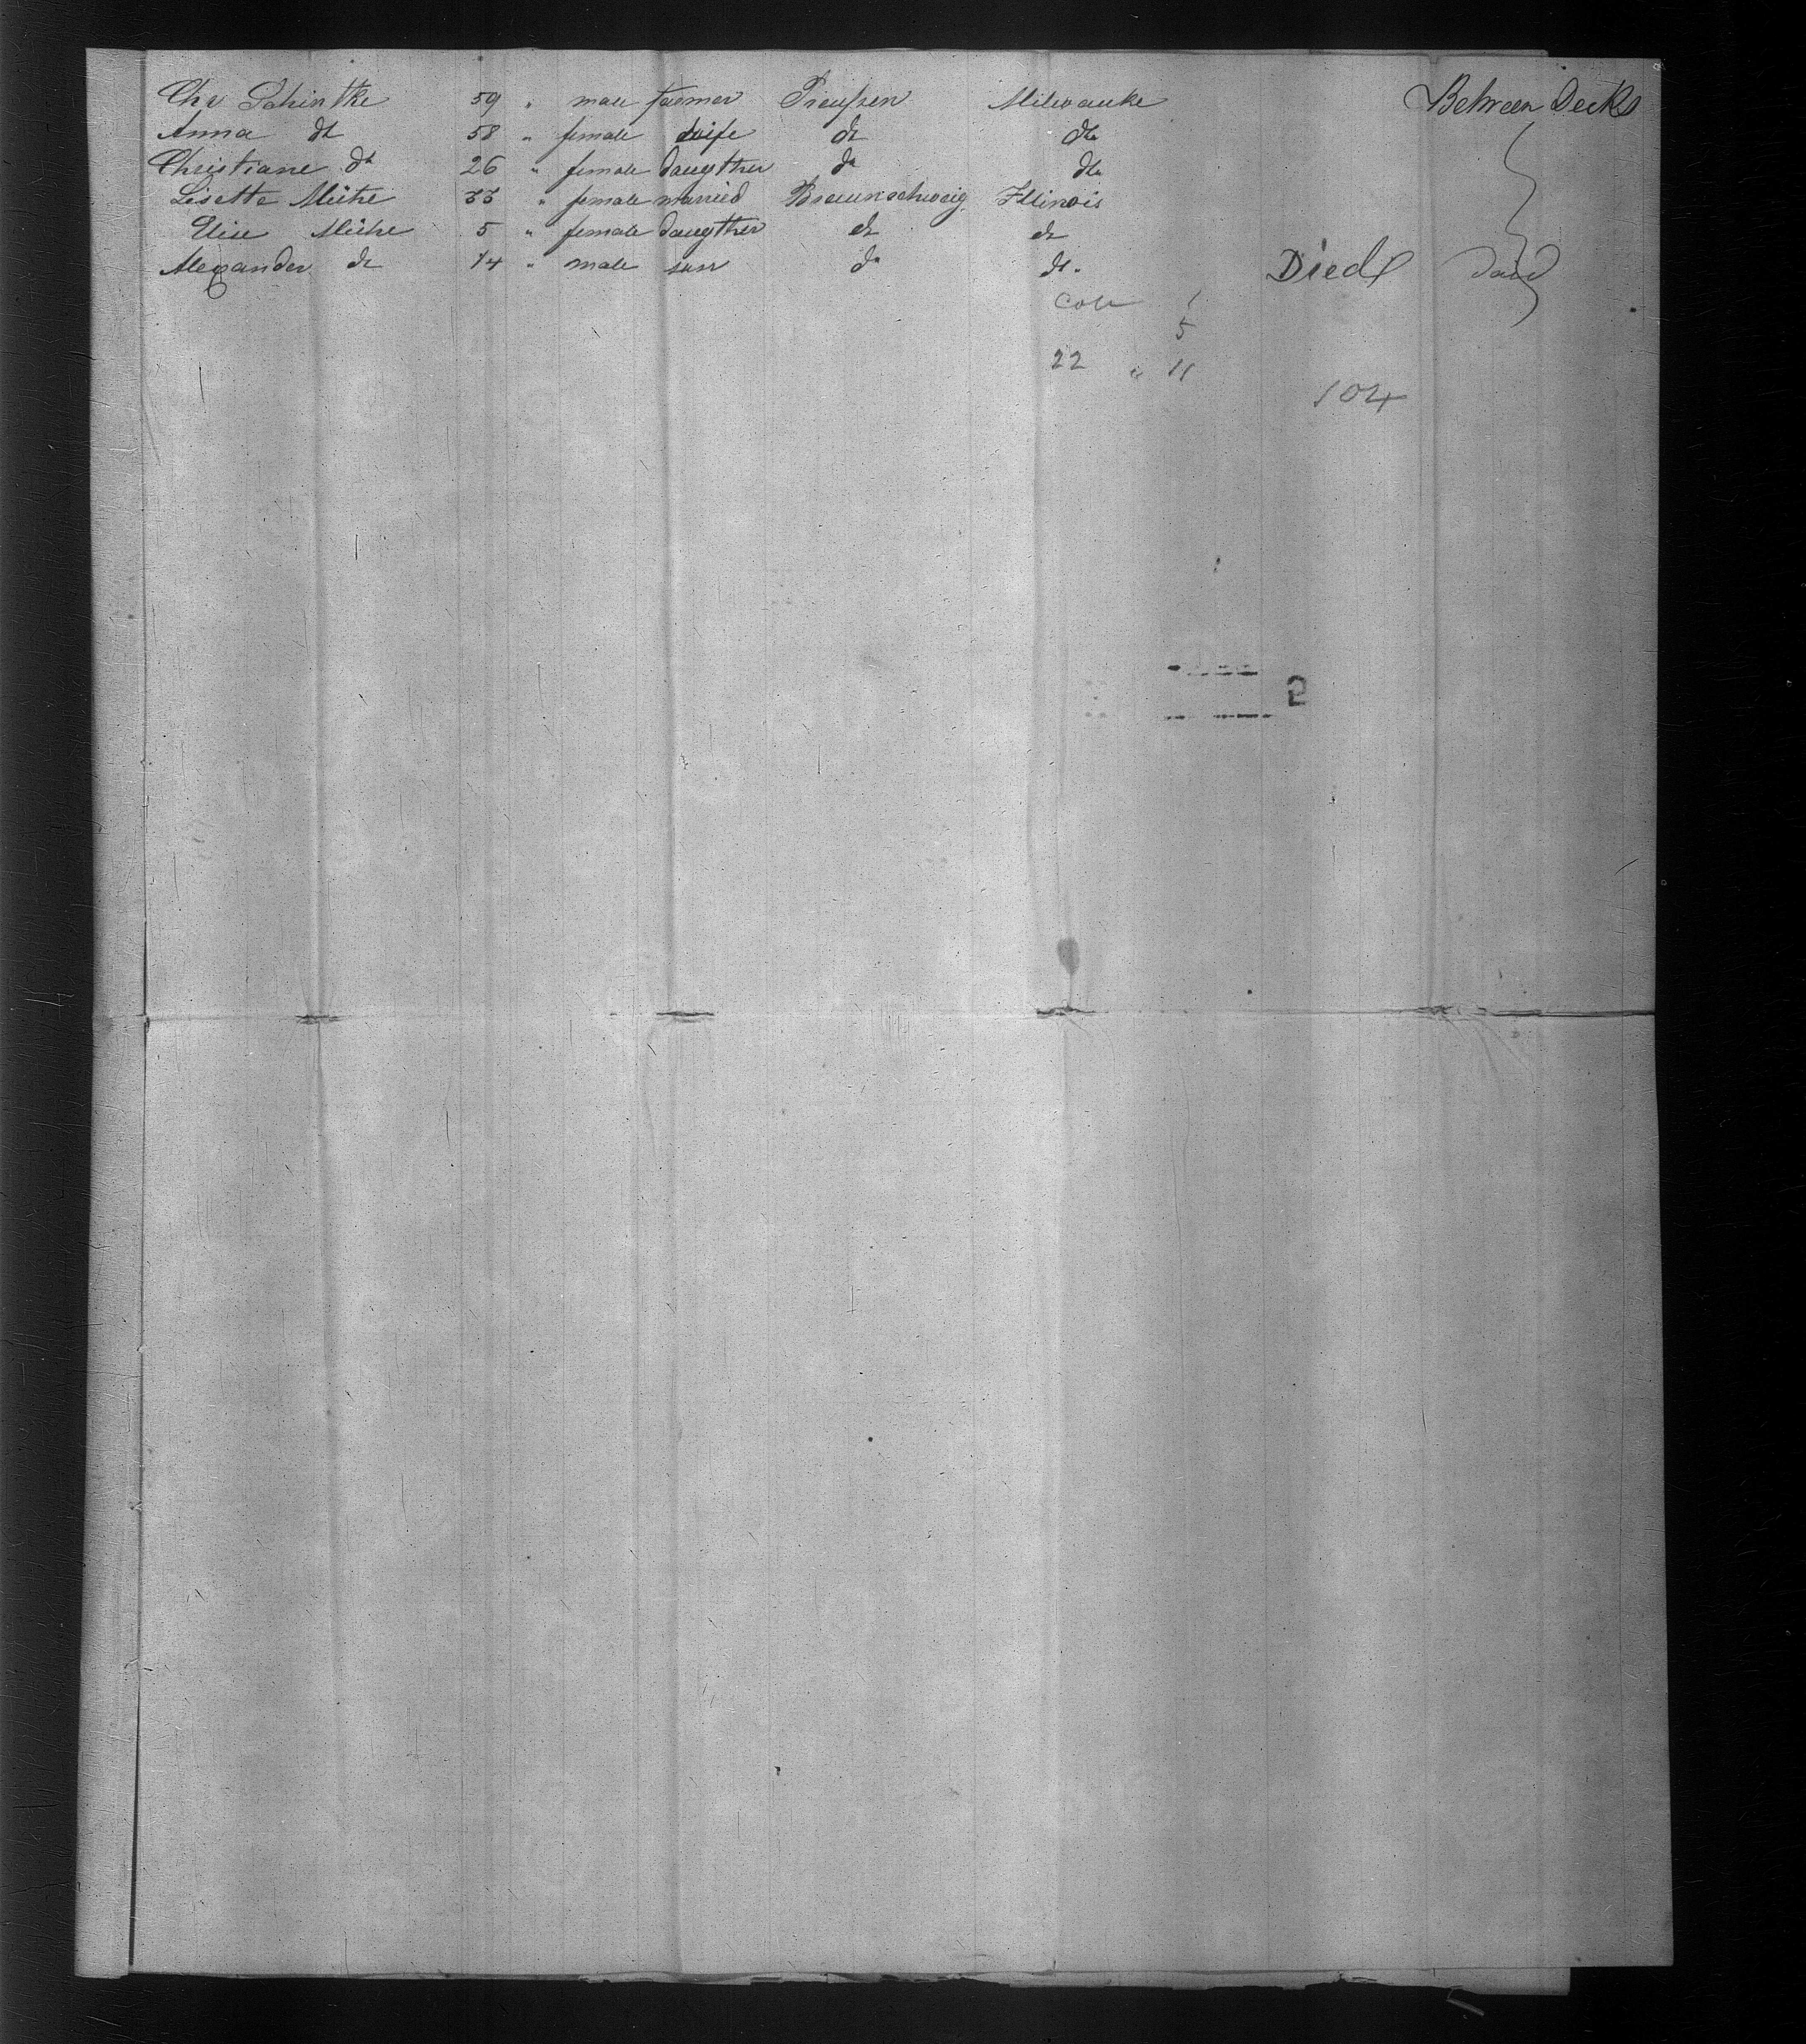 Chr Schintke 59 " male farmer Preussen Milwauke Between Decks
Anna dt 58 " female wife dt dt
Christiane dt 26 " female daugther dt dt
Lisette Mühe 33 " female married Braunschweig Illinois
Elise Mühe 5 " female daugther dt dt
Alexander dt 14 " male son dt dt Died
1
5
22 " 11
104